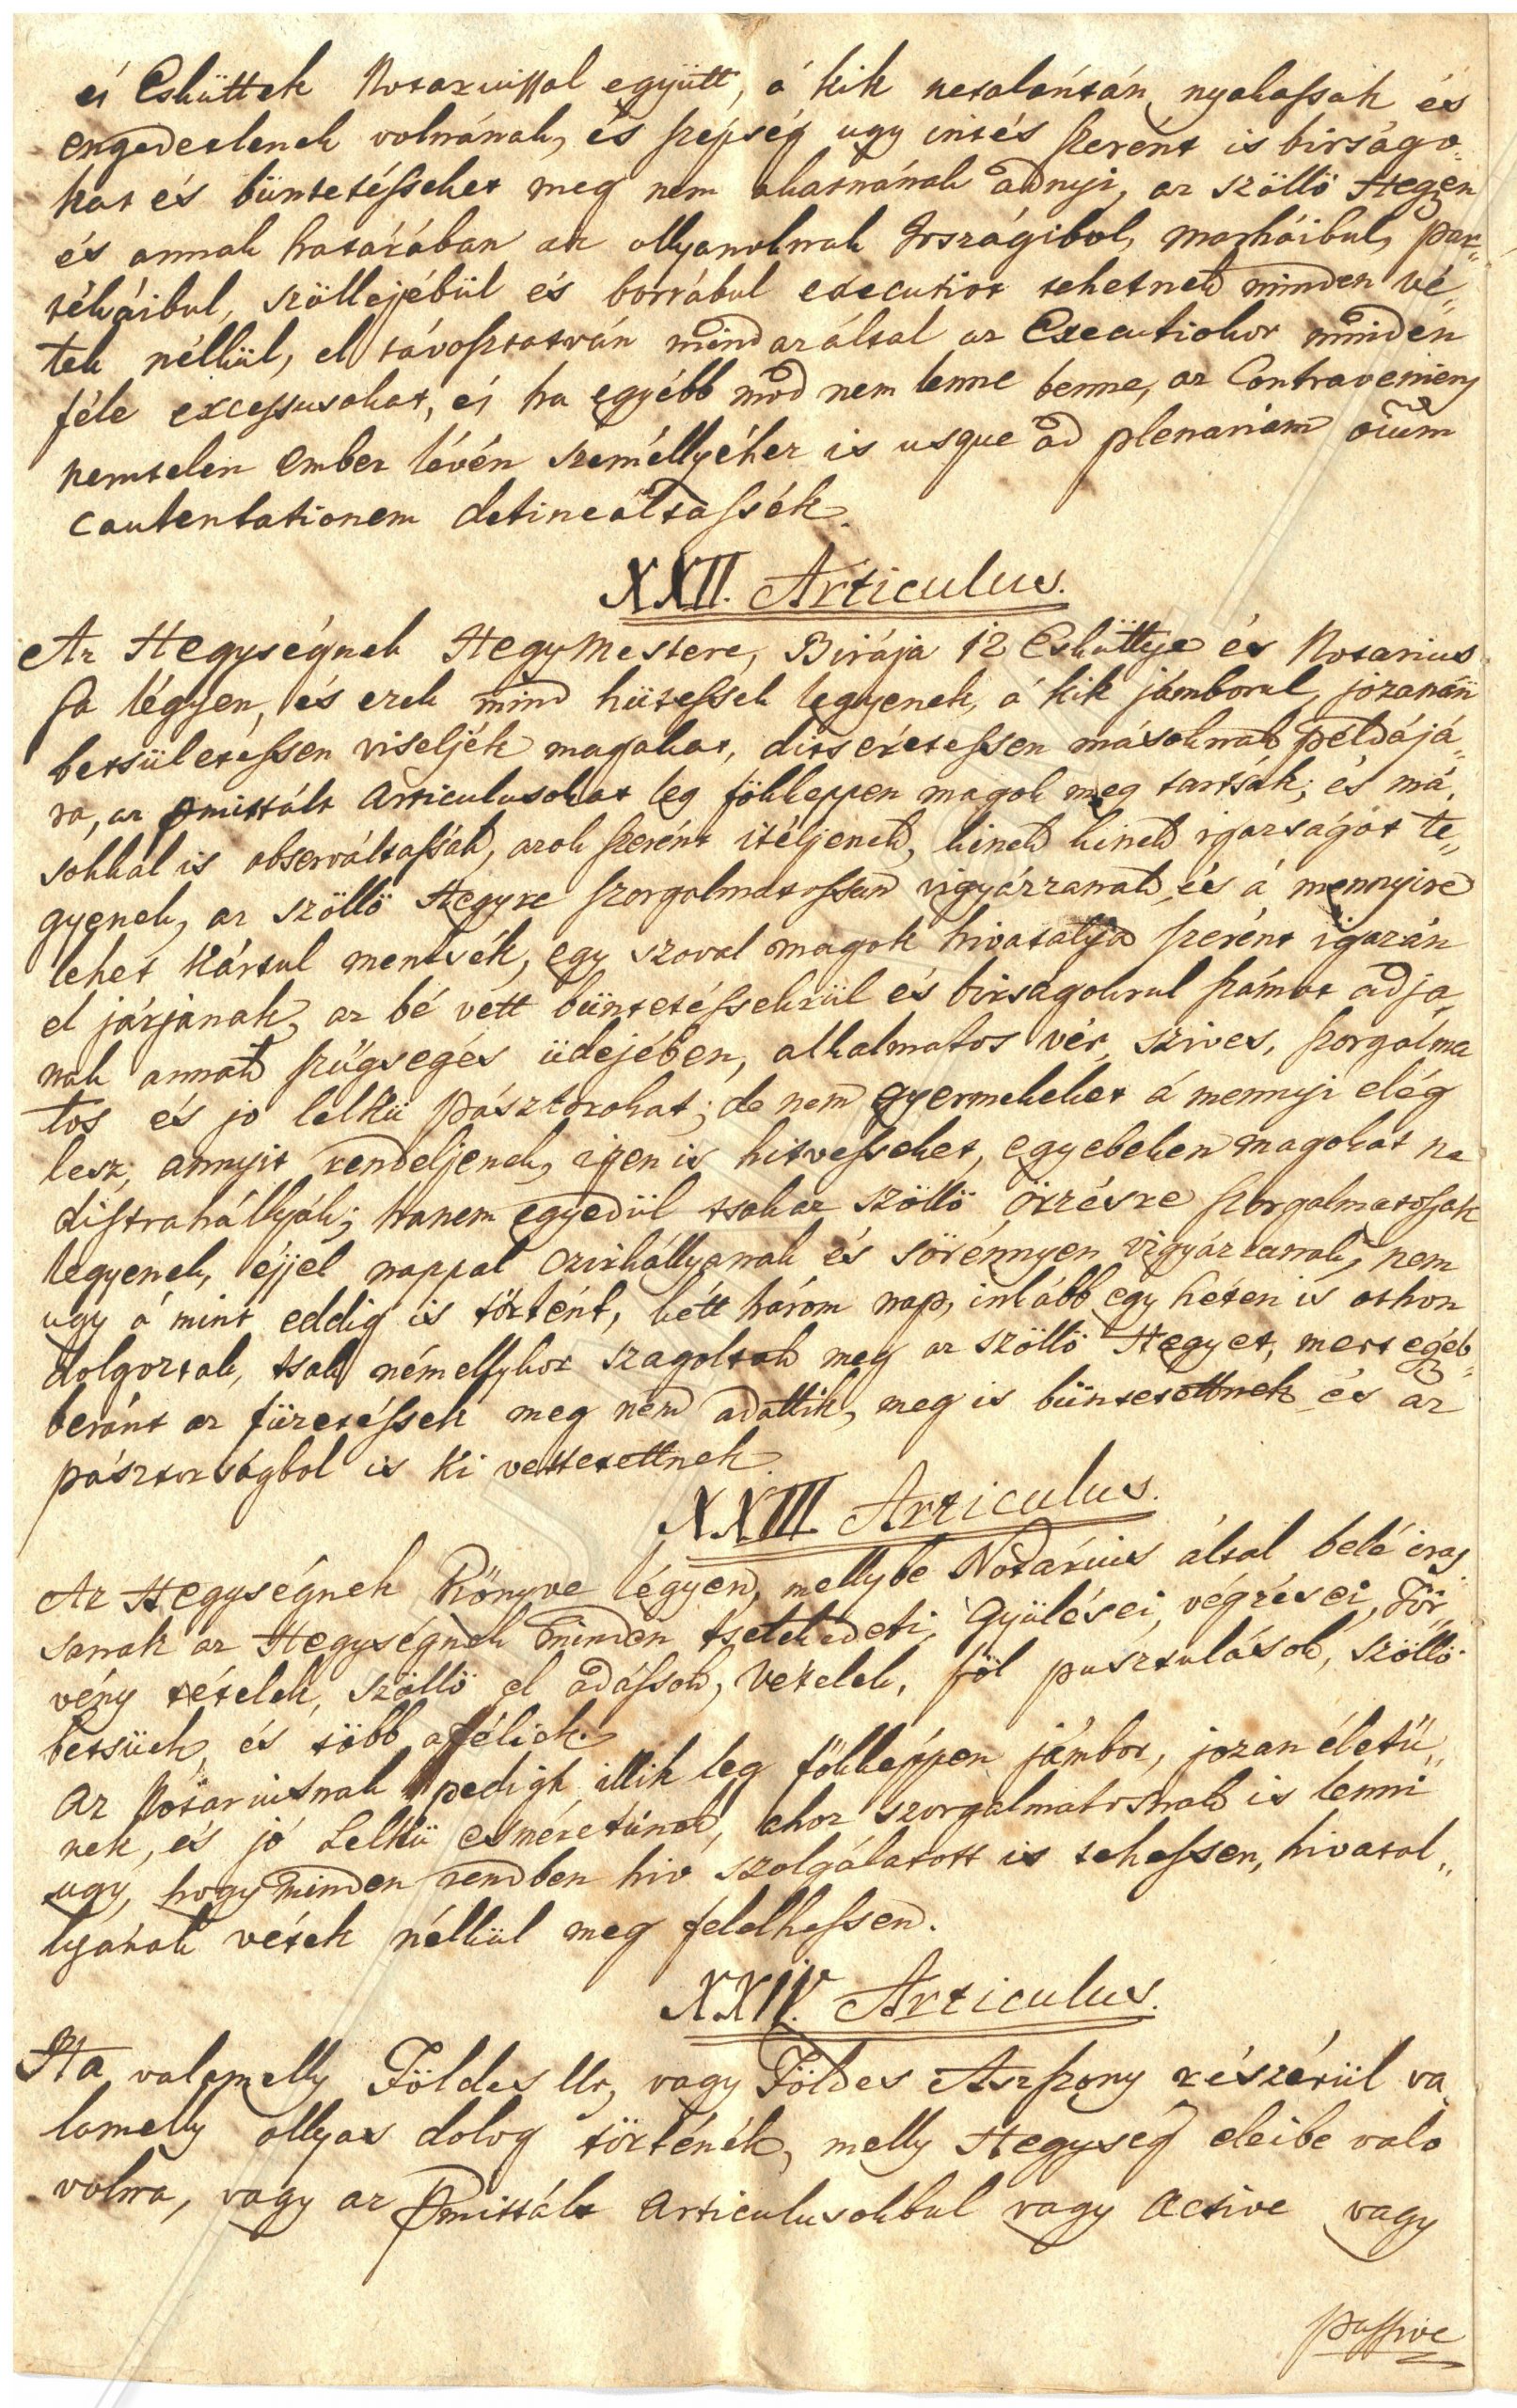 és Esküttek Notariussal együtt, á kik netalántán nyakassak és
engedetlenek volnának, és szépség ugy intés szerént is birságo„
kat és büntetésseket meg nem akarnának adnyi, az szöllö Hegyen
és annak határában az ollyanoknak Jószágibol, marháibul, por„
tékáibul, szöllejébül és borrábul executiot tehetnek minden vé„
tek nélkül, el távosztatván mindazáltal az Executiokor minden
féle excessusokat, és ha egyébb mód nem lenne benne, az Contraveniens
nemtelen Ember lévén személlyéhez is usque ad plenariam oium
contentationem detineáltassék.
XXII. Articulus.
Az Hegységnek HegyMestere, Birája 12 Esküttje és Notarius
sa légyen, és ezek mind hütessek legyenek, á kik jámborul, jozanan
betsületéssen viseljék magokat, ditséretessen másoknak példájá„
ra, az pmittált Articulusokat leg fökleppen magok meg tartsák; és má„
sokkal is observáltassák, azok szerént itéljenek, kinek kinek igazságot te„
gyenek, az szöllö Hegyre szorgalmatossan vigyázzanak, és á mennyire
lehet kártul mentsék, egy szoval magok hivatalja szerént igazán
el járjanak, az bé vett büntetéssekrül és birságokrul számot adja„
nak annak szügségés üdejében, alkalmatos vér, szives, szorgalma
tos és jo lelkü pásztorokat; de nem gyermekeket á mennyi elég
lesz, annyit rendeljenek, igen is hitvesseket, egyebeken magokat ne
distrahállyák; hanem egyedül tsak az szöllö örzésre szorgalmatossak
legyenek, éjjel nappal czirkállyanak és sörénnyen vigyázzanak, nem
ugy á mint eddig is történt, kétt három nap, inkább egy héten is othon
dolgoztak, tsak némellykor szagoltak meg az szöllö Hegyet, mert egéb„
beránt az füzetéssek meg nem adattik, meg is büntetottnek és az
pásztorságbol is ki vettetettnek.
XXIII Articulus.
Az Hegységnek Könyve légyen, mellybe Nótárius által belé iras„
sanak az Hegységnek minden tselekedeti, Gyülései, végzései, Tör„
vény tételek, szöllö el adássok, Vetelek, föl pusztulások, szöllö
betsüek, és több aféliek.
Az Nótáriusnak pedigh illik leg fökképpen jámbor, jozan életü„
nek, és jó Lelkü esméretünek, ahoz szorgalmatosnak is lenni
ugy, hogy minden rendben hiv szolgálatott is tehessen, hivatal„
lyának vétek nélkül meg felelhessen.
XXIV. Articulus.
Ha valamelly Földes Ur, vagy Földes Aszszony részérül va„
lamelly ollyas dolog történék, melly Hegység eleibe valo
volna, vagy az Pmittált Articulusokbul vagy Active vagy
passive